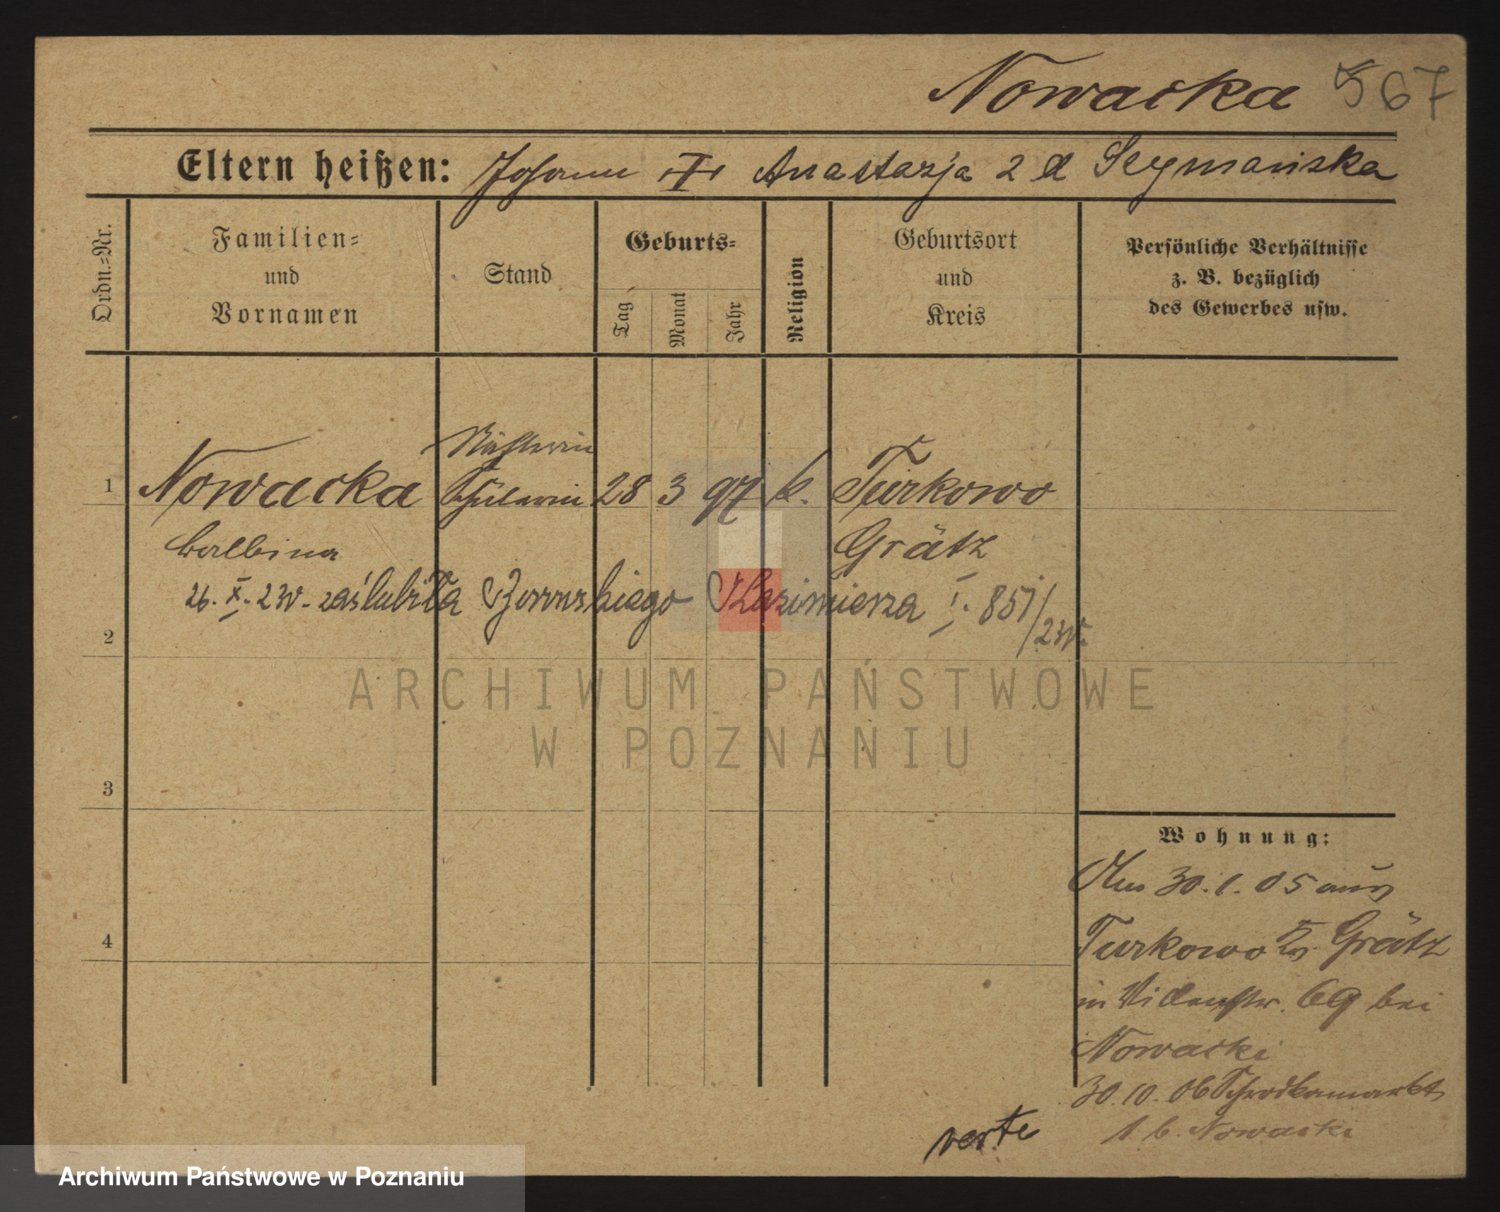 Nowacka 567
Eltern heißen: Johann Anastazja 2 d Szymańska
Ordn.-Nr.
Familien- und Vornamen
Stand
Geburts-
Tag
Monat
Jahr
Religion
Geburtsort und Kreis
Persönliche Verhältnisse
z. B. bezüglich
des Gewerbes usw.
Nähterin
1 Nowacka Schülerin 28 3 97 k. Turkowo
Balbina Grätz
26. X. 23r. zaślubiła Kazimierza I. 857/23r.
2
ARCHIWUM PAŃSTWOWE
W POZNANIU
3
Wohnung:
Am 30.1.05 aus
4
Turkowo Kr. Grätz
in 69 bei
Nowacki
30.10.06 Schrodkamarkt
1 b. Nowacki
verte
Archiwum Państwowe w Poznaniu